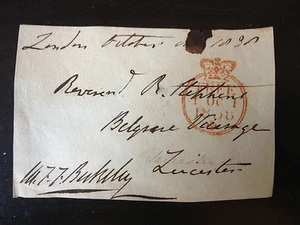 London October 1838
Reverend R. Stephens
Belgrave Vicarage
Leicester
M.F.F. Berkeley
FREE
OC
1838